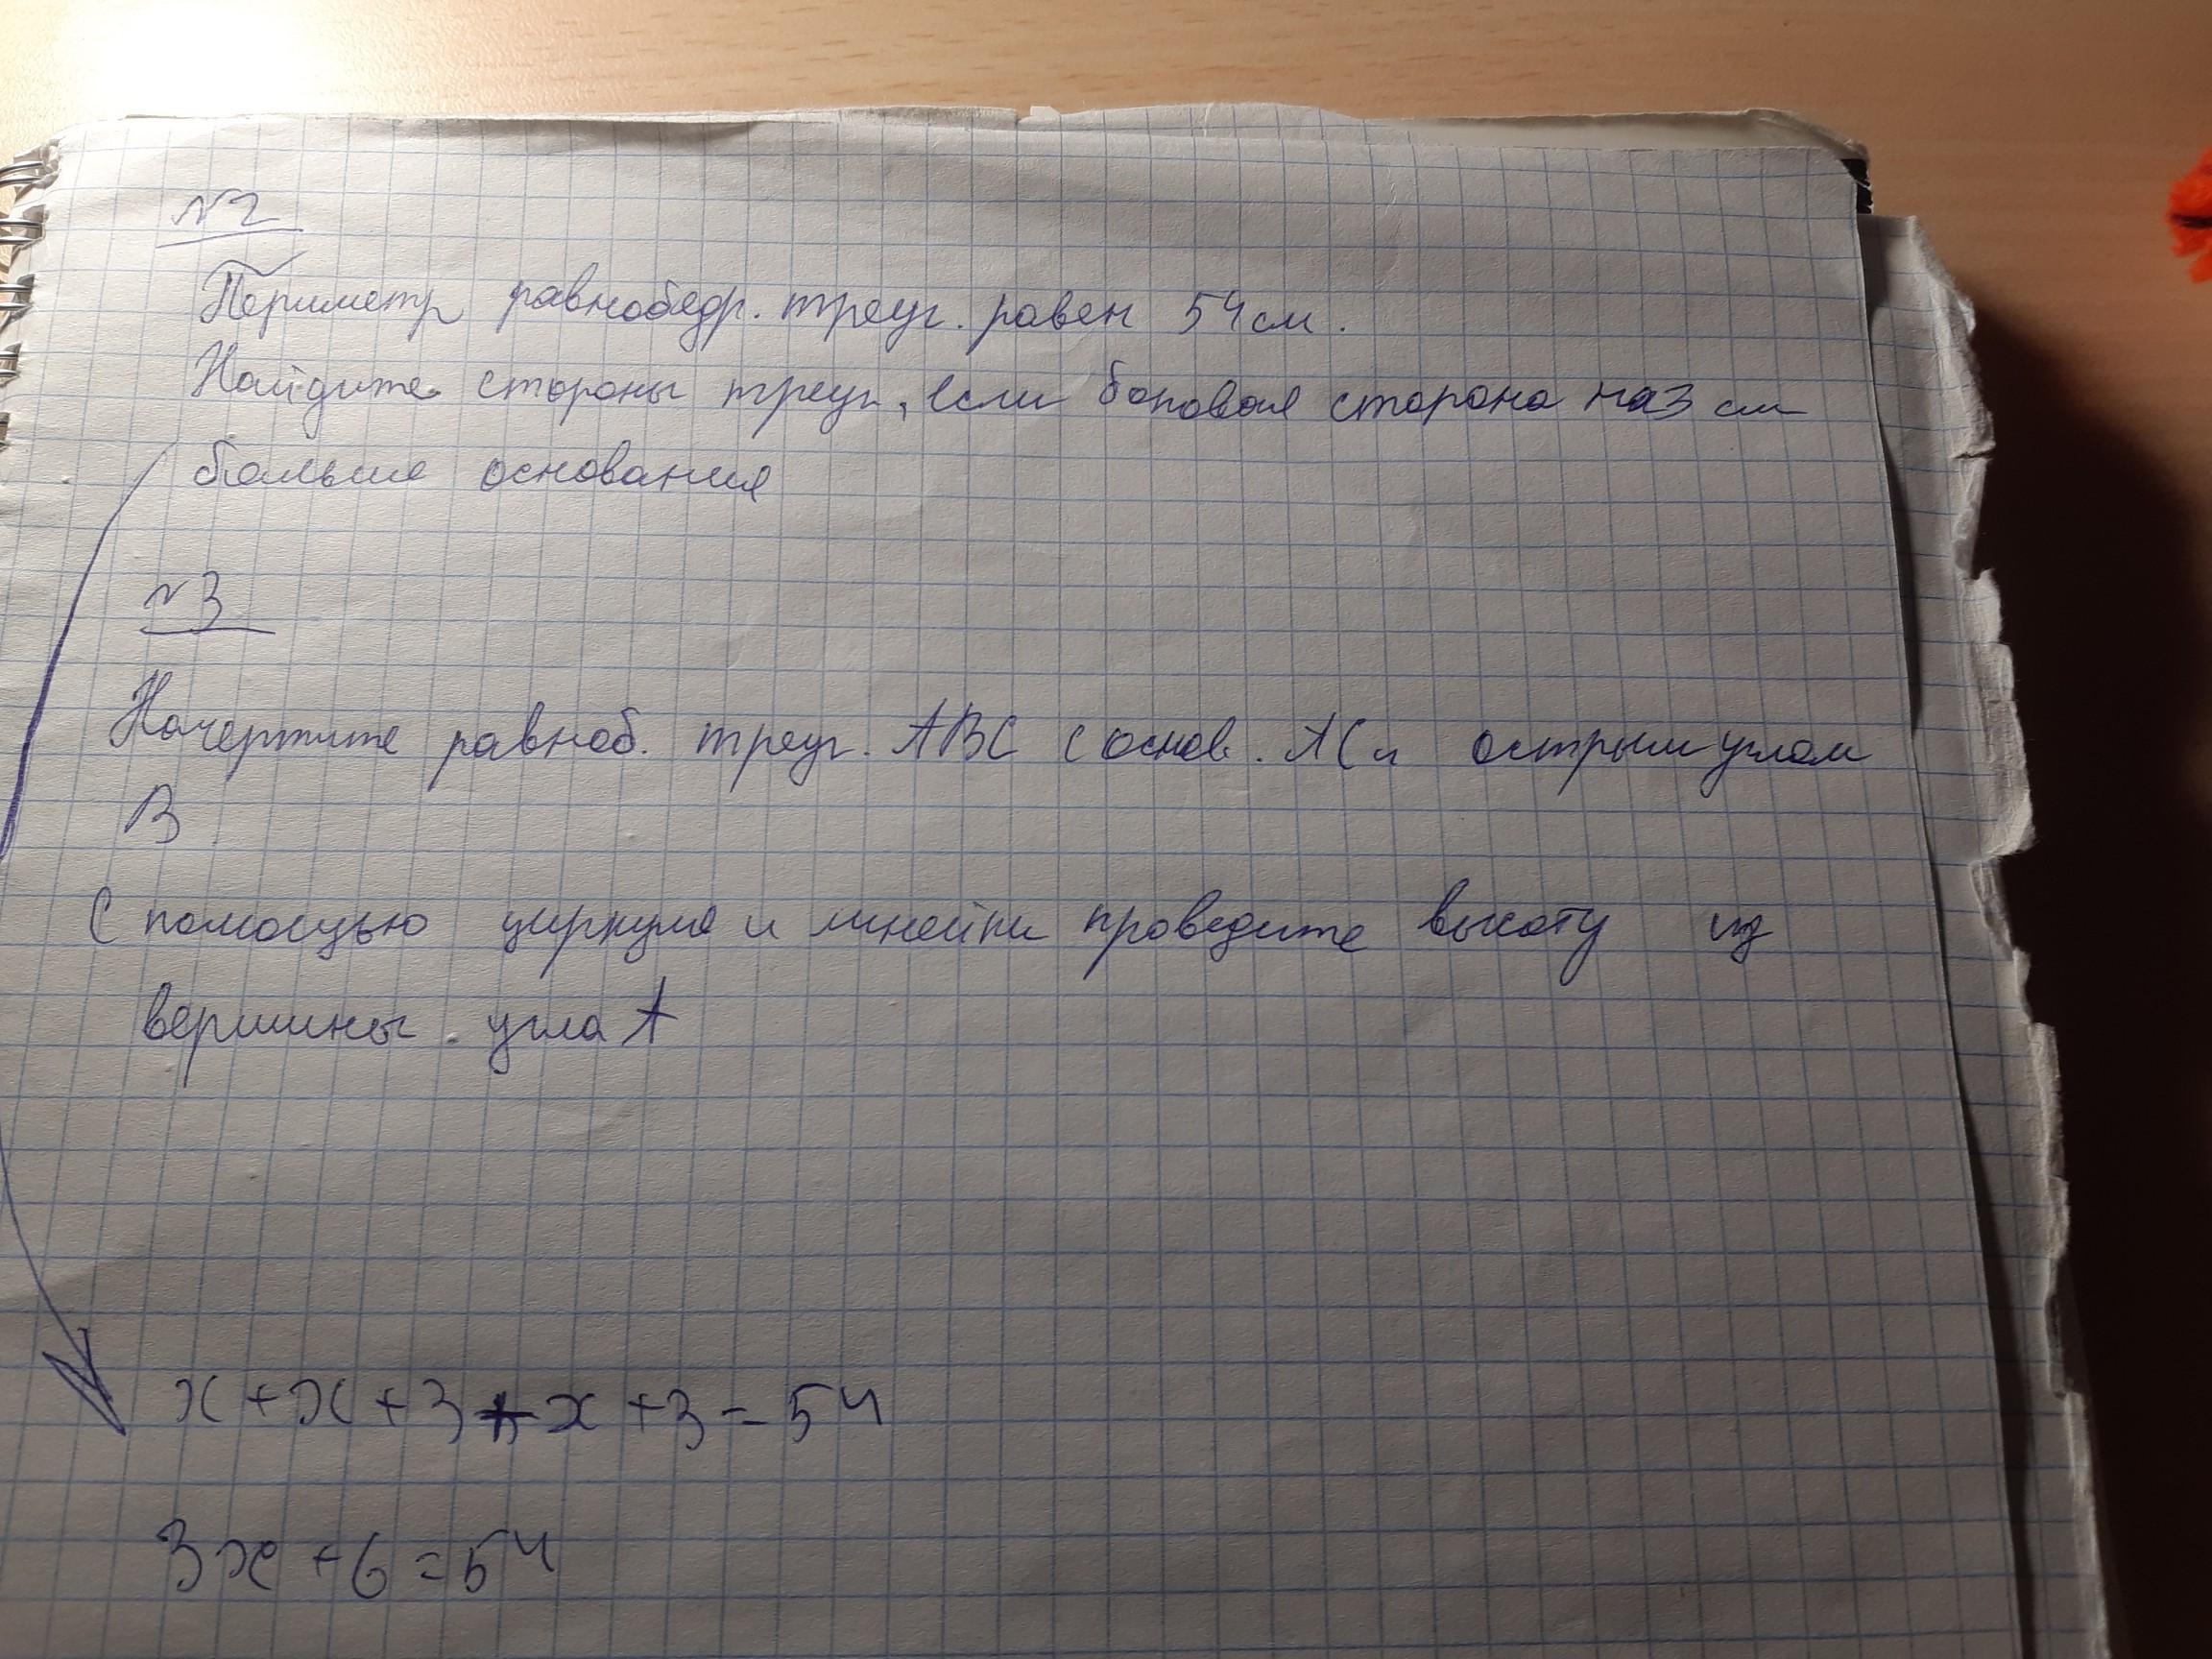 №2
Периметр равнобедр. треуг. равен 54 см.
Найдите стороны треуг., если боковая сторона на 3 см
больше основания
№3
Начертите равноб. треуг. ABC с основ. AC и острым углом
B
С помощью циркуля и линейки проведите высоту из
вершины угла A
x + x + 3 + x + 3 = 54
3x + 6 = 54